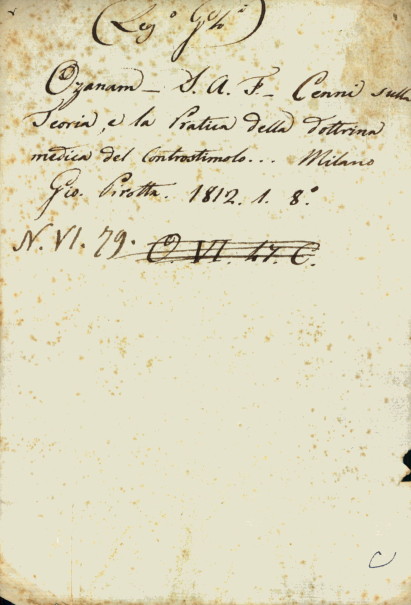 Ozanam - J. A. F. - Cenni sulla
Teoria, e la Pratica della dottrina
medica del Controstimolo... Milano
Gio. Pirotta. 1812. 1. 8.°
N. VI. 79. O. VI. 47. C.
C